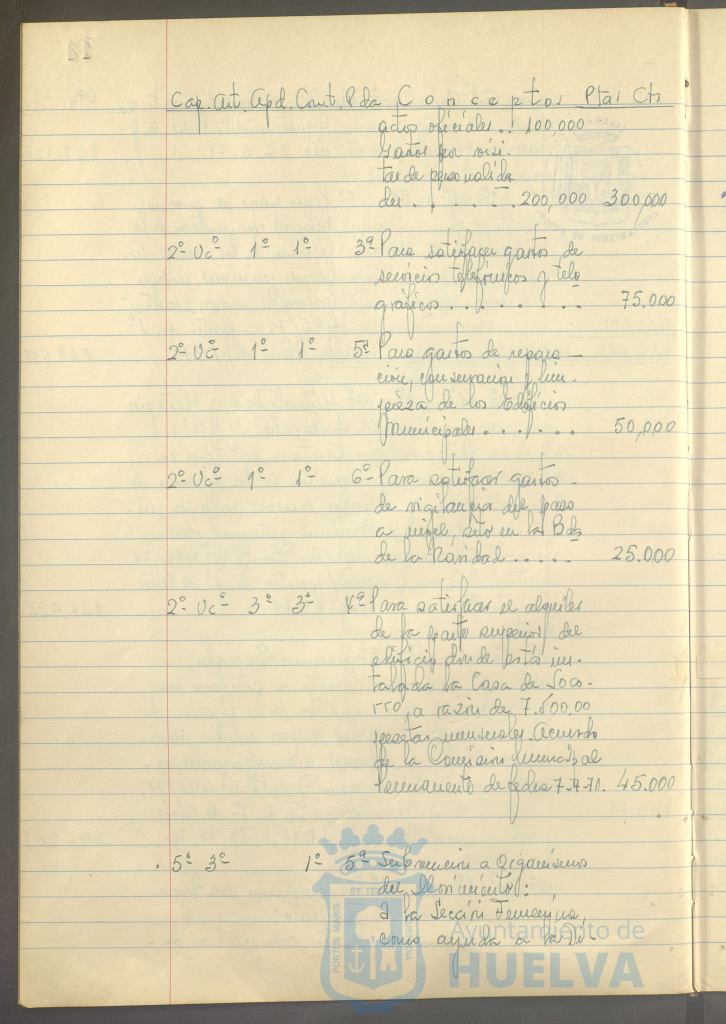 Cap. Art. Apd. Cont. Pda Conceptos Ptas Cts
actos oficiales.. 100,000
y años por visi-
tas de personalida
des . . . . . . . 200,000 300,000
2º Ucº 1º 1º 3ª Para satisfacer gastos de
servicios telefónicos y tele
gráficos . . . . . . . . 75.000
2º Ucº 1º 1º 5ª Para gastos de repara-
ción, conservacion y lim-
pieza de los Edificios
Municipales . . . . . . 50,000
2º Ucº 1º 1º 6ª Para satisfacer gastos
de vigilancia del paso
a nivel, sito en la Bda
de la Navidad . . . . . 25.000
2º Ucº 3º 3º 4ª Para satisfacer el alquiler
de la parte superior del
edificio donde está ins-
talada la Casa de Soco-
rro, a razón de 7.500,00
pesetas mensuales. Acuerdo
de la Comision Municipal
Permanente de fecha 45.000
5º 3º 1º 5ª Subvencion a Organismos
del Movimiento:
a la Sección Femenina,
como ayuda a la Di-
PORTUS MARIS
ET TERRÆ
CUSTODIA
Ayuntamiento de
HUELVA